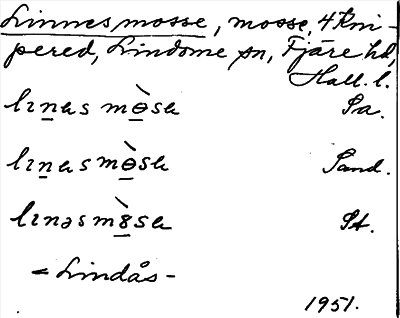 Linnes mosse, mosse, 4 km i-
pered, Lindome sn, Fjäre hd,
Hall. l.
lɪnɐs mɵ̀sɐ Pa.
lɪnɐs mɵ̀sɐ Sand.
lɪnəs mɵ̀sɐ St.
< Lindås-
1951.